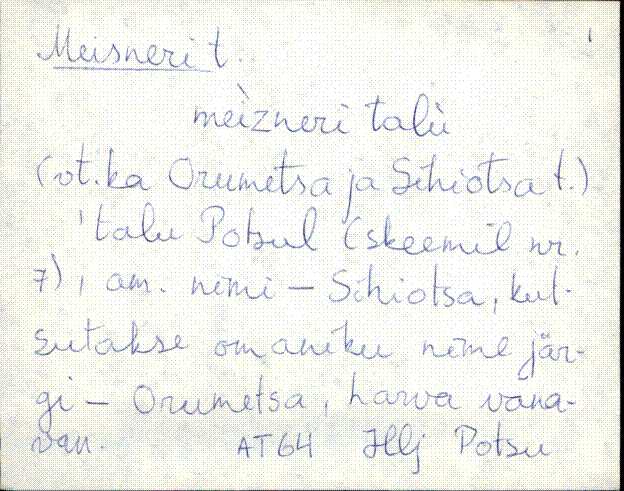 Meisneri t.
meìzneri talù
(vt. ka Orumetsa ja Sihiotsa t.)
'talu Potsul (skeemil nr.
7), am. nimi – Sihiotsa, kut-
sutakse omaniku nime jär-
gi – Orumetsa, harva vana-
van. AT64 Hlj Potsu